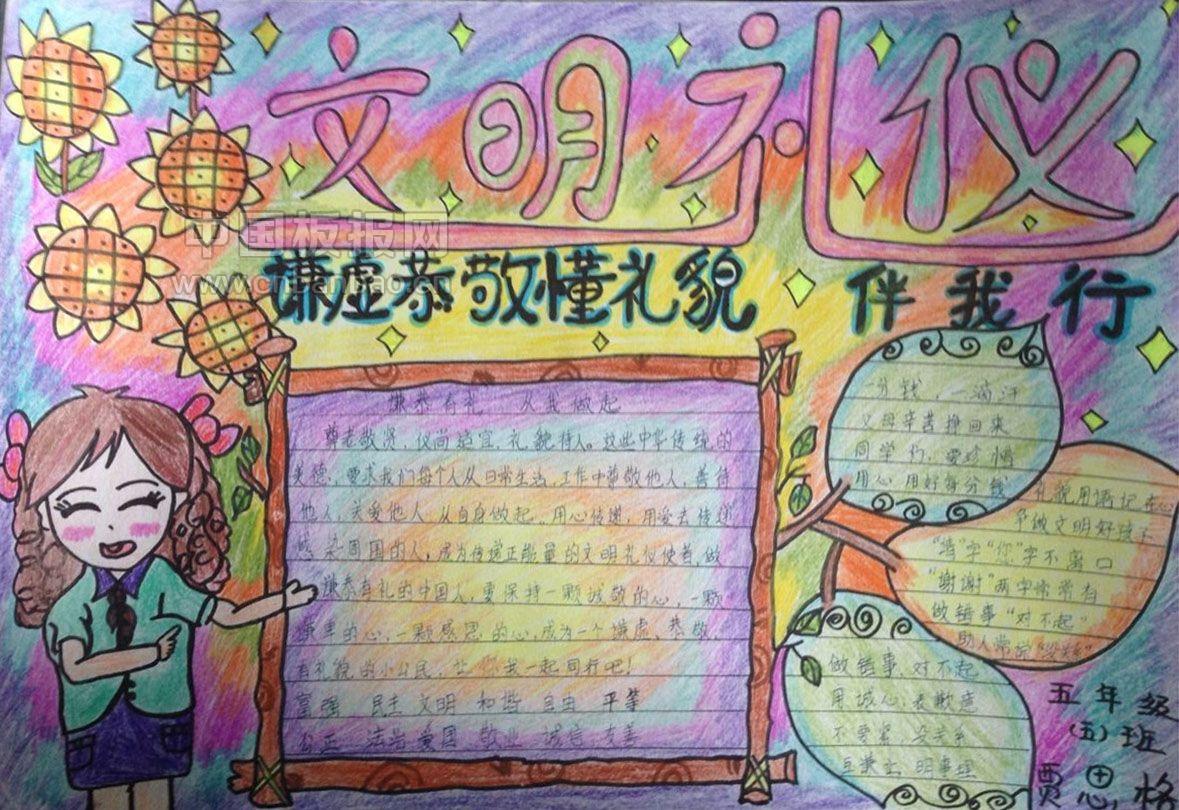 文明礼仪
中国板报网
谦虚恭敬懂礼貌 伴我行
谦恭有礼 从我做起
尊老敬贤、仪尚适宜、礼貌待人。这些中华传统的
美德,要求我们每个人从日常生活,工作中尊敬他人,善待
他人,关爱他人,从自身做起。用心传递,用爱去传递
感染周围的人,成为传递正能量的文明礼仪使者,做
谦恭有礼的中国人,要保持一颗诚敬的心,一颗
谦卑的心,一颗感恩的心,成为一个谦虚、恭敬、
有礼貌的小公民,让 我一起同行吧!
富强 民主 文明 和谐 自由 平等
公正 法治 爱国 敬业 诚信 友善
一分钱,一滴汗
父母辛苦挣回来
同学们,要珍惜
用心用好每分钱
礼貌用语记在心
争做文明好孩子
“请”字“您”字不离口
“谢谢”两字常常有
做错事“对不起”
助人常学“没关系”
做错事,对不起
用诚心,表歉意
不要紧 没关系
互谦让 明事理
五年级
(五)班
贾思格